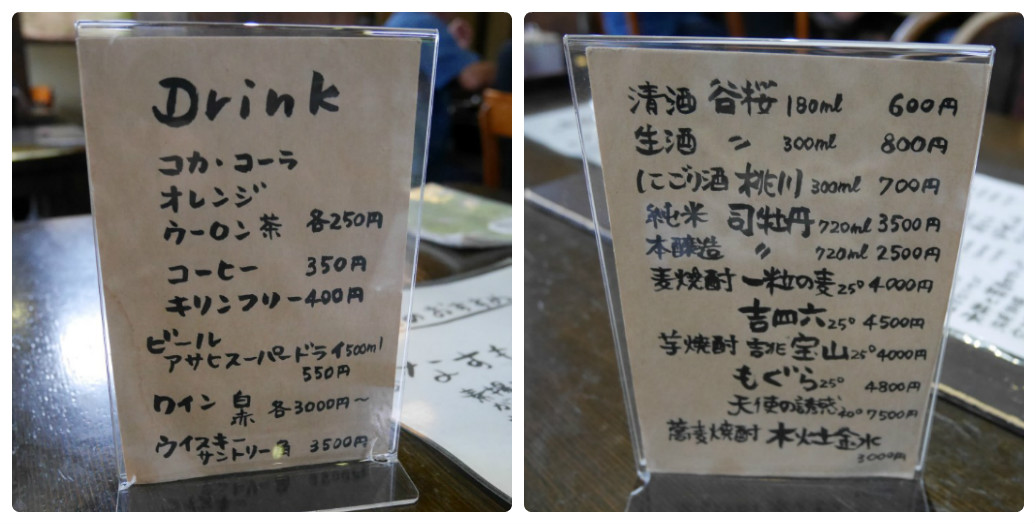 Drink
コカ・コーラ
オレンジ
ウーロン茶 各250円
コーヒー 350円
キリンフリー 400円
ビール
アサヒスーパードライ 500ml
550円
ワイン 白 赤 各3000円〜
ウイスキー
サントリー角 3500円
清酒 谷桜 180ml 600円
生酒 〃 300ml 800円
にごり酒 桃川 300ml 700円
純米 司牡丹 720ml 3500円
本醸造 〃 720ml 2500円
麦焼酎 一粒の麦 25° 4000円
吉四六 25° 4500円
芋焼酎 吉兆宝山 25° 4000円
もぐら 25° 4800円
天使の誘惑 40° 7500円
蕎麦焼酎 木火土金水
3000円